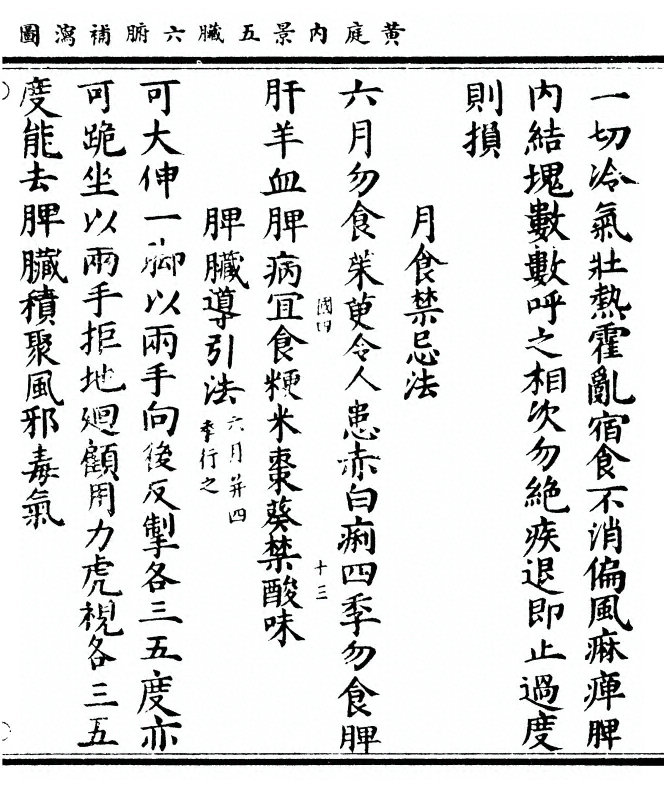 黃庭內景五臟六腑補瀉圖
一切冷氣壯熱霍亂宿食不消偏風麻痺脾
內結塊數數呼之相次勿絕疾退即止過度
則損
月食禁忌法
六月勿食茱萸令人患赤白痢四季勿食脾
肝羊血脾病宜食粳米棗葵禁酸味
國四
十三
脾臟導引法六月并四季行之
可大伸一腳以兩手向後反掣各三五度亦
可跪坐以兩手拒地廻顧用力虎視各三五
度能去脾臟積聚風邪毒氣